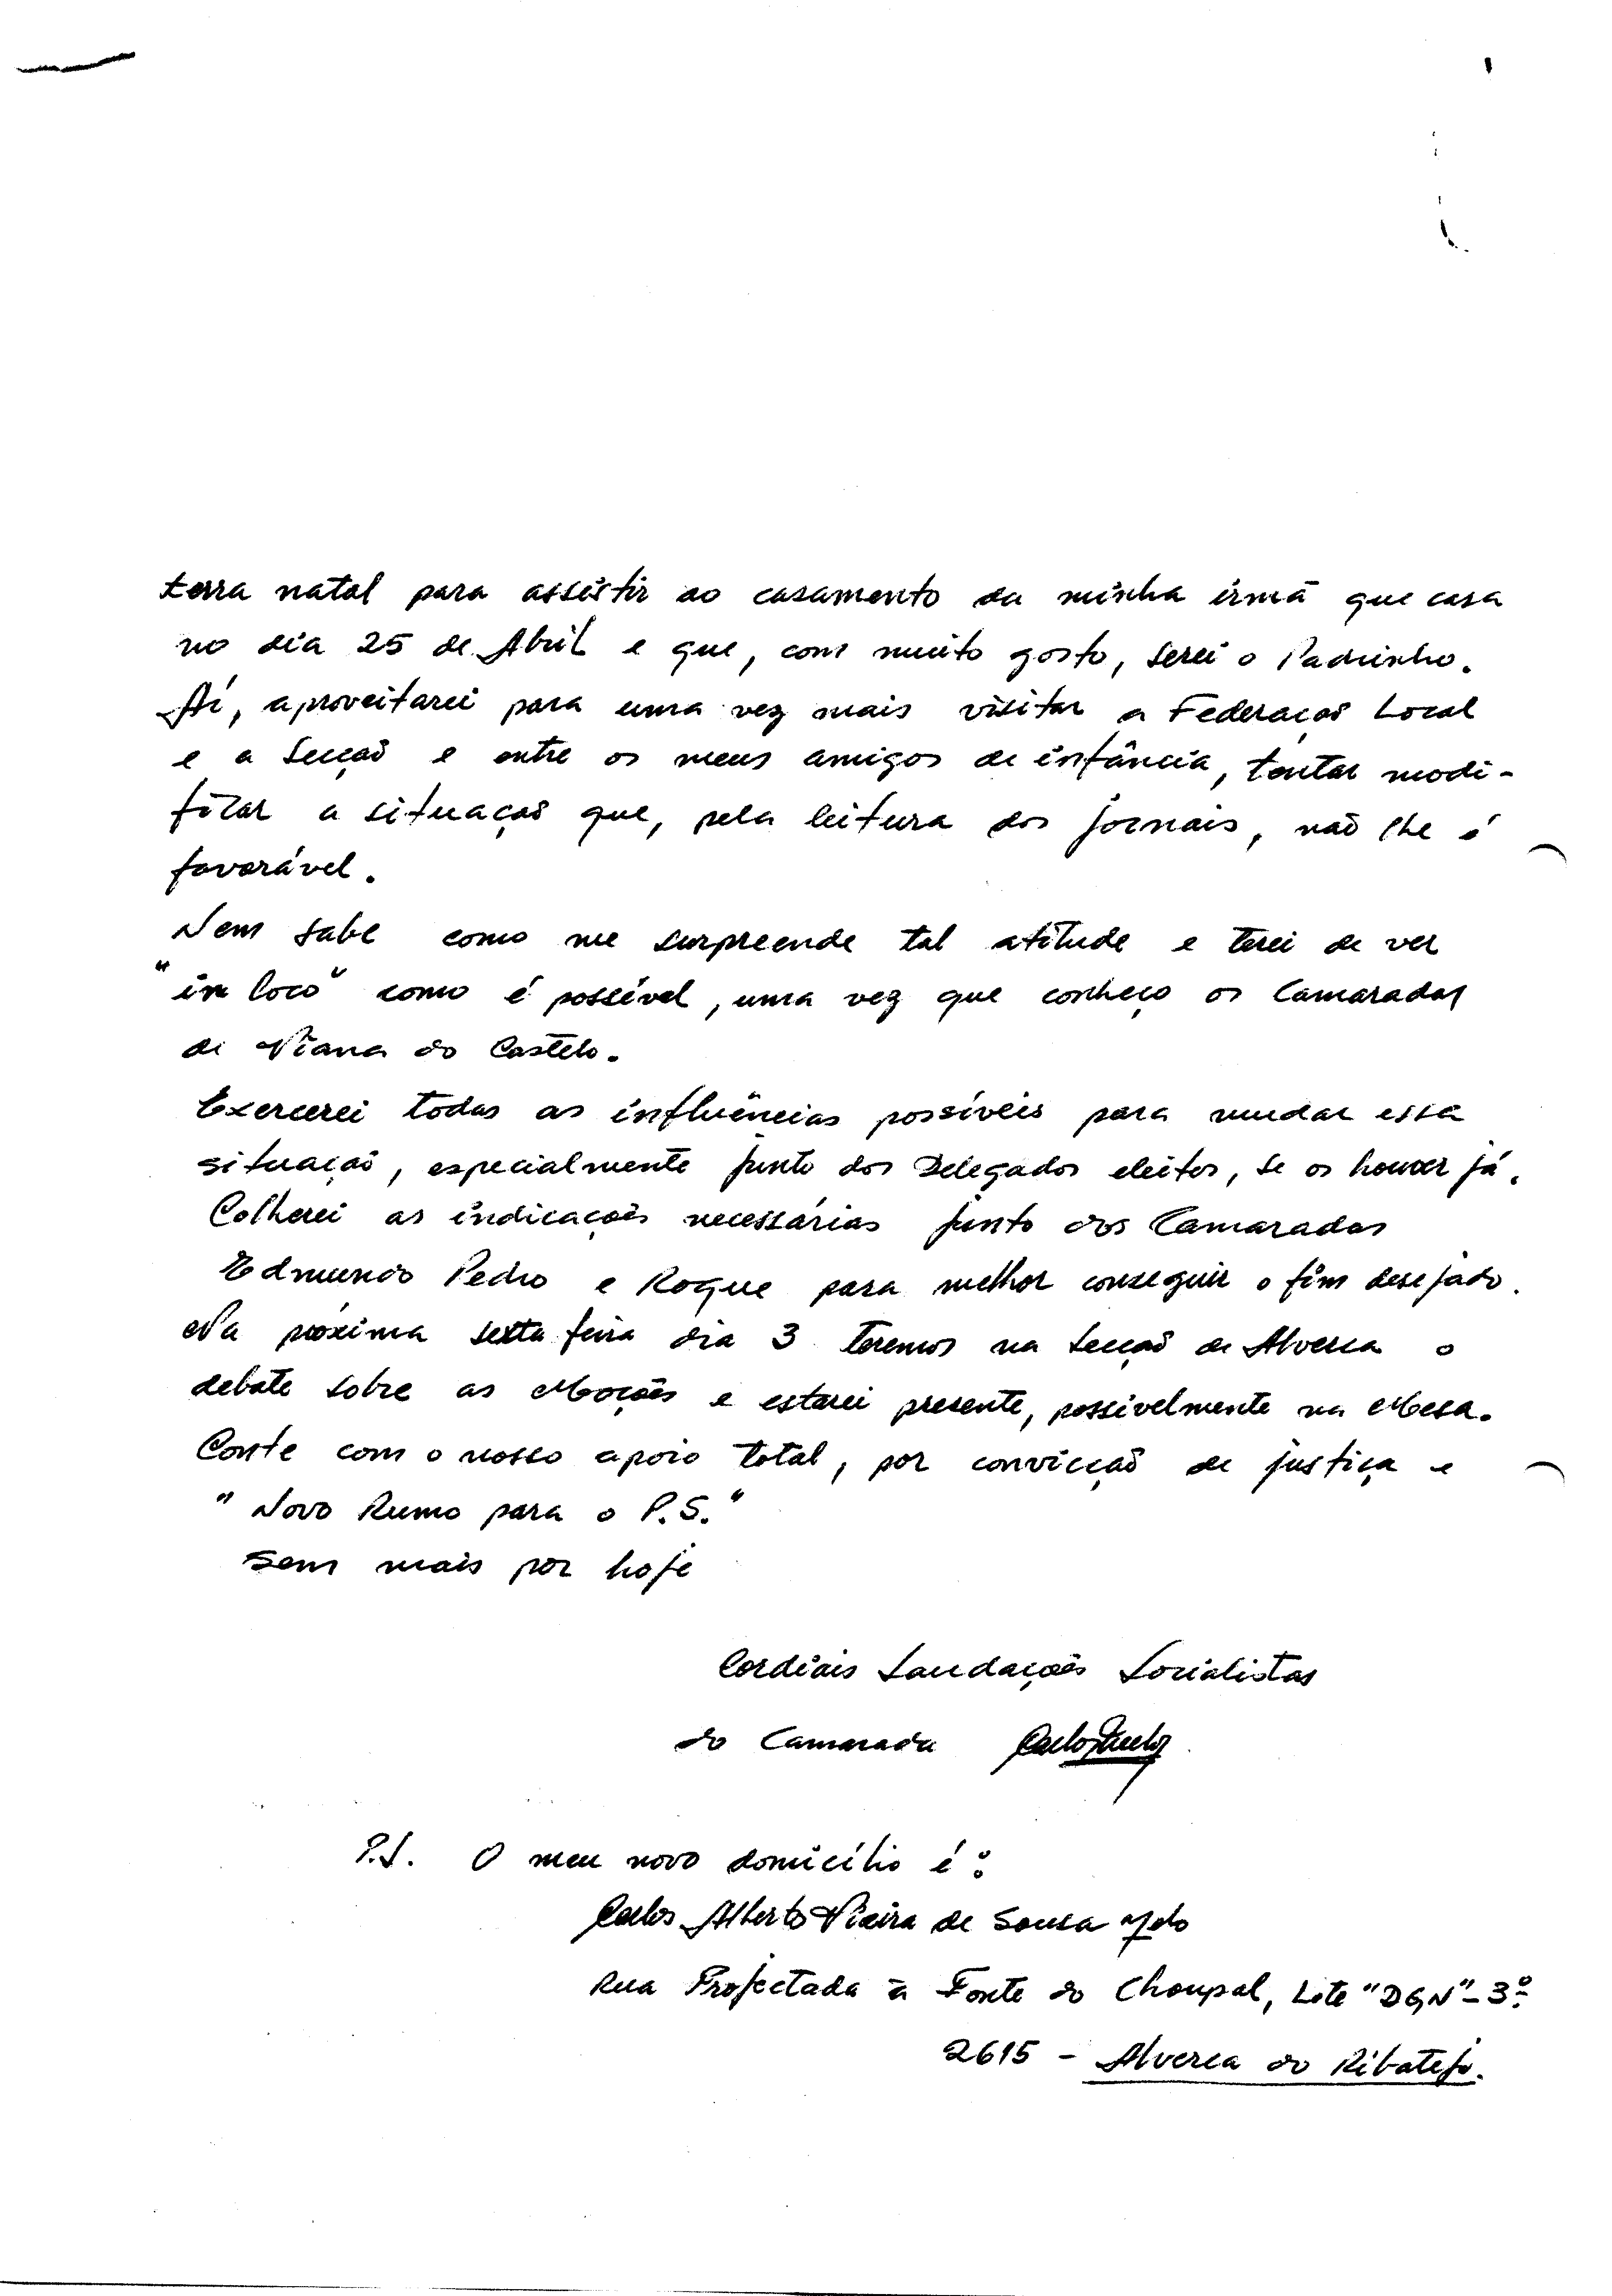 terra natal para assistir ao casamento da minha irmã que casa
no dia 25 de Abril e que, com muito gosto, serei o Padrinho.
Aí, aproveitarei para uma vez mais visitar a Federação Local
e a Secção e entre os meus amigos de infância, tentar modi-
ficar a situação que, pela leitura dos jornais, não lhe é
favorável.
Nem sabe como me surpreende tal atitude e terei de ver
"in loco" como é possível, uma vez que conheço os Camaradas
de Viana do Castelo.
Exercerei todas as influências possíveis para mudar essa
situação, especialmente junto dos Delegados eleitos, se os houver já.
Colherei as indicações necessárias junto dos Camaradas
Edmundo Pedro e Roque para melhor conseguir o fim desejado.
Na próxima sexta feira dia 3 teremos na Secção de Alverca o
debate sobre as Moções e estarei presente, possivelmente na Mesa.
Conte com o nosso apoio total, por convicção de justiça e
"Novo Rumo para o P.S."
Sem mais por hoje
Cordiais Saudações Socialistas
do Camarada
P.S. O meu novo domicílio é:
Carlos Alberto Vieira de Sousa
Rua Projectada à Fonte do Choupal, Lote "DGN" - 3º
2615 - Alverca do Ribatejo.